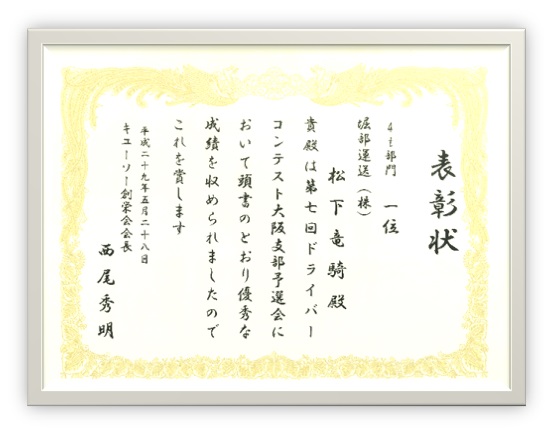 表彰状
4t部門 一位
堀部運送（株）
松下竜騎殿
貴殿は第七回ドライバー
コンテスト大阪支部予選会に
おいて頭書のとおり優秀な
成績を収められましたので
これを賞します
平成二十九年五月二十八日
キユーソー創栄会会長
西尾秀明